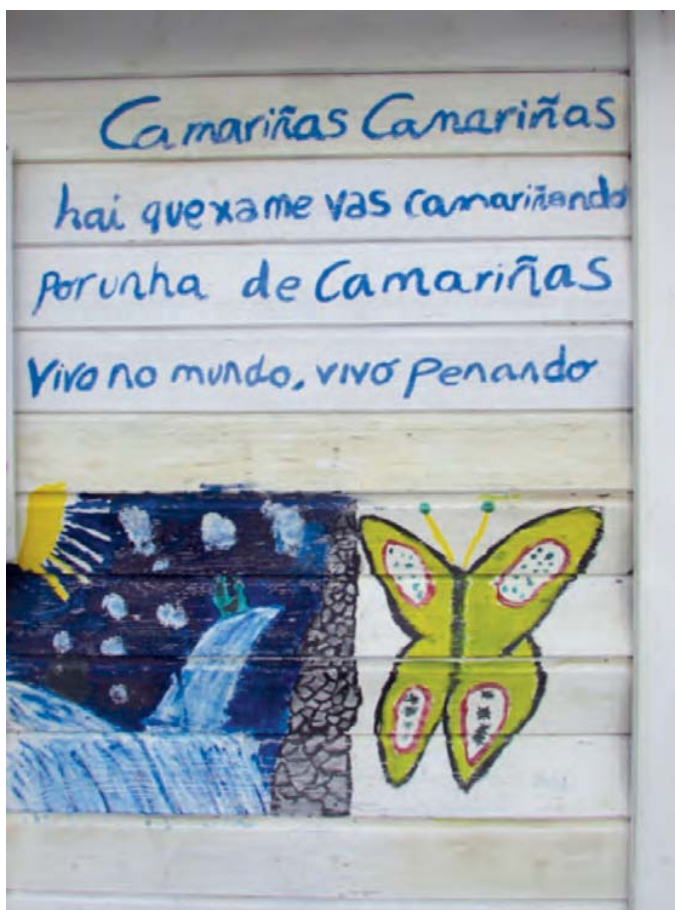 Camariñas Camariñas
hai quexame vas camariñando
Porunha de Camariñas
Vivo no mundo, vivo penando